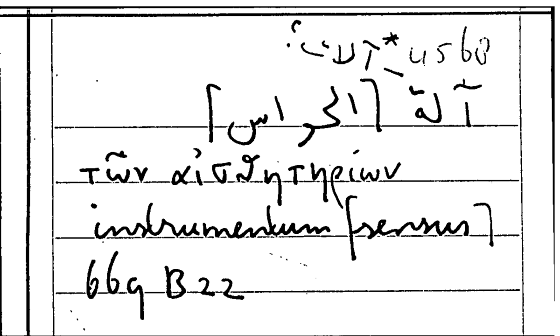 آلات: * 4568
آلة [الحواس]
τῶν αἰσθητηρίων
instrumentum [sensus]
669 B 22